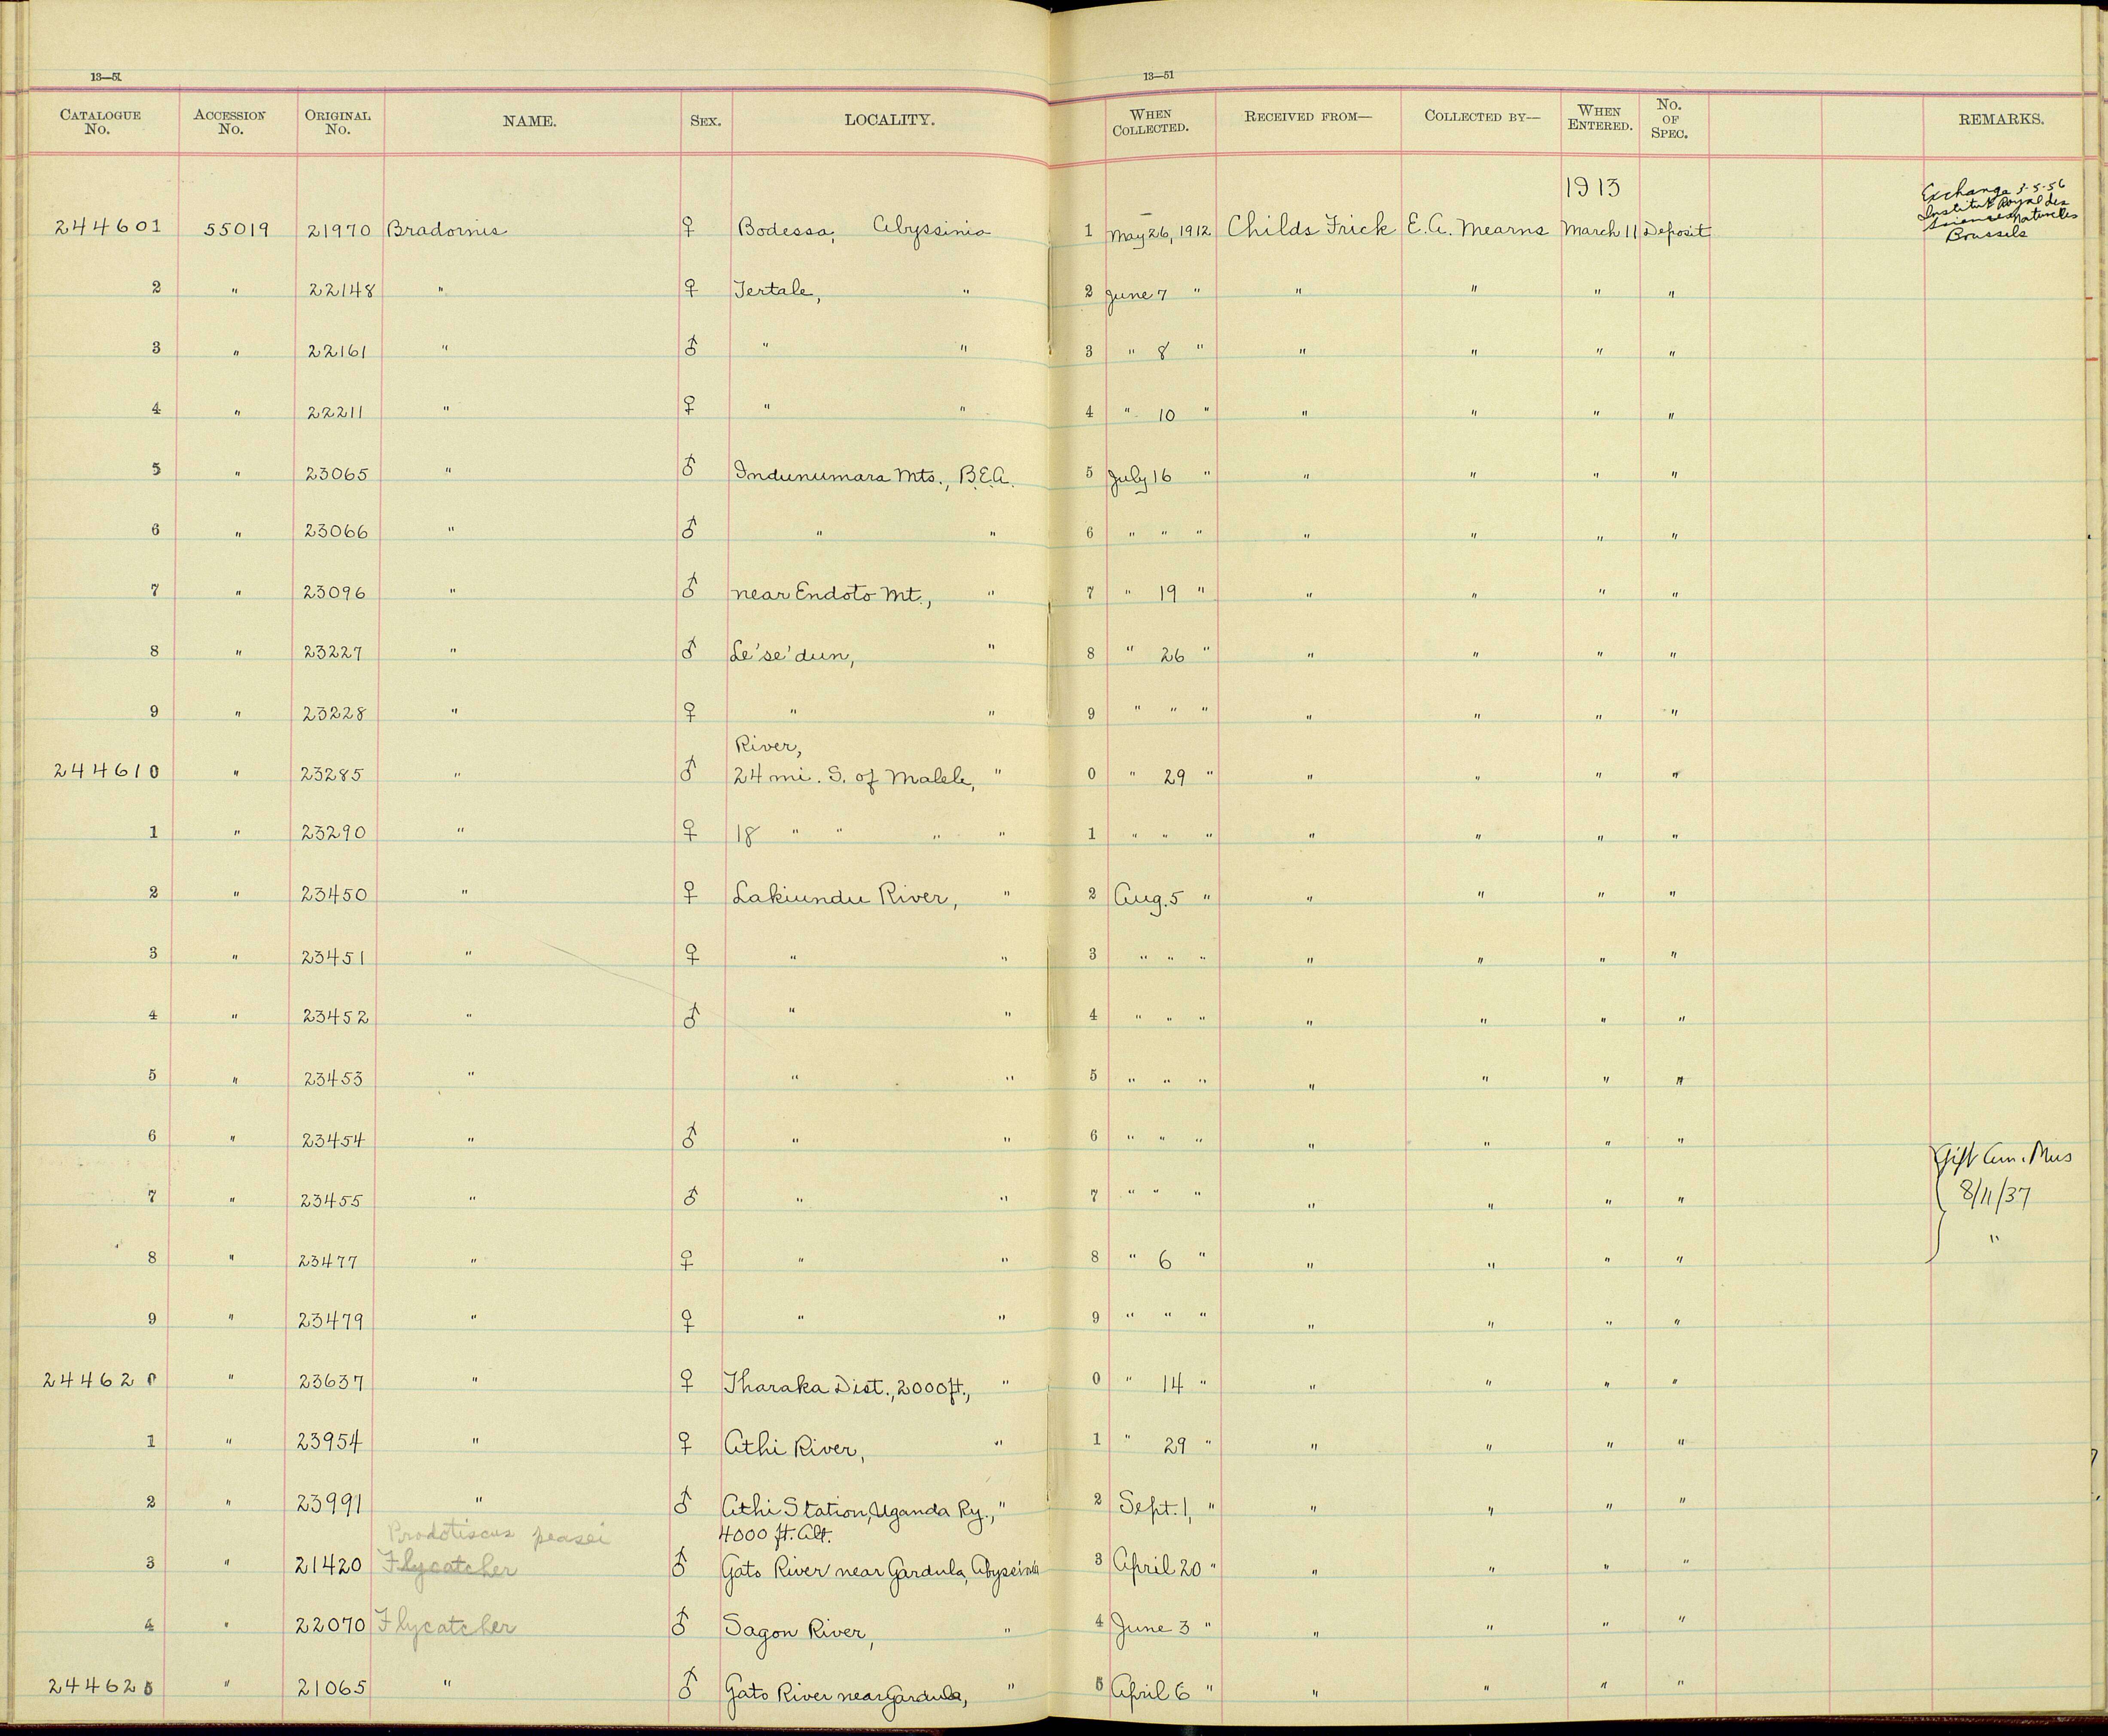 13—51 13—51
CATALOGUE No. ACCESSION No. ORIGINAL No. NAME. SEX. LOCALITY. WHEN COLLECTED. RECEIVED FROM— COLLECTED BY— WHEN ENTERED. No. OF SPEC. REMARKS.
1913
Exchange 3-5-56
Institut Royal des
Sciences Naturelles
Brussels
244601 55019 21970 Bradornis ♀ Bodessa, Abyssinia 1 May 26, 1912 Childs Frick E. A. Mearns March 11 Deposit
2 " 22148 " ♀ Tertale, " 2 June 7 " " " " "
3 " 22161 " ♂ " " 3 " 8 " " " " "
4 " 22211 " ♀ " " 4 " 10 " " " " "
5 " 23065 " ♂ Indunumara Mts., B.E.A. 5 July 16 " " " " "
6 " 23066 " ♂ " " 6 " " " " " " "
7 " 23096 " ♂ near Endoto Mt., " 7 " 19 " " " " "
8 " 23227 " ♂ Le'se'dun, " 8 " 26 " " " " "
9 " 23228 " ♀ " " 9 " " " " " " "
River,
244610 " 23285 " ♂ 24 mi. S. of Malele, " 0 " 29 " " " " "
1 " 23290 " ♀ 18 " " " " 1 " " " " " " "
2 " 23450 " ♀ Lakiundu River, " 2 Aug. 5 " " " " "
3 " 23451 " ♀ " " 3 " " " " " " "
4 " 23452 " ♂ " " 4 " " " " " " "
5 " 23453 " " " 5 " " " " " " "
6 " 23454 " ♂ " " 6 " " " " " " "
Gift Am. Mus
7 " 23455 " ♂ " " 7 " " " " " " " 8/11/37
8 " 23477 " ♀ " " 8 " 6 " " " " " "
9 " 23479 " ♀ " " 9 " " " " " " "
244620 " 23637 " ♀ Tharaka Dist., 2000 ft., " 0 " 14 " " " " "
1 " 23954 " ♀ Athi River, " 1 " 29 " " " " "
2 " 23991 " ♂ Athi Station, Uganda Ry., " 2 Sept. 1, " " " " "
Prodotiscus peasei 4000 ft. Alt.
3 " 21420 Flycatcher ♂ Gato River near Gardula, Abyssinia 3 April 20 " " " " "
4 " 22070 Flycatcher ♂ Sagon River, " 4 June 3 " " " " "
244625 " 21065 " ♂ Gato River near Gardula, " 5 April 6 " " " " "